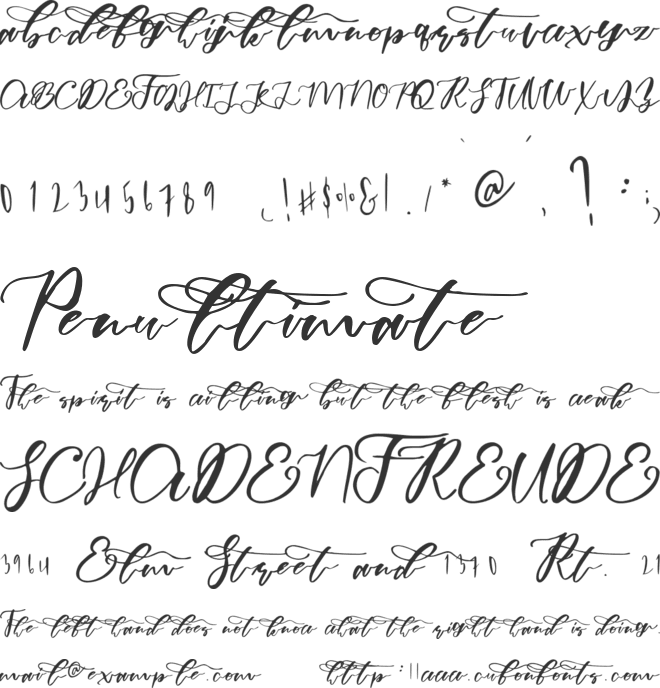 abcdefghijklmnopqrstuvwxyz
ABCDEFGHIJKLMNOPQRSTUVWXYZ
0123456789 (!#$%&|./*`@´,?:;)
Penultimate
The spirit is willing but the flesh is weak
SCHADENFREUDE
3964 Elm Street and 1370 Rt. 21
The left hand does not know what the right hand is doing.
mail@example.com http://www.cufonfonts.com